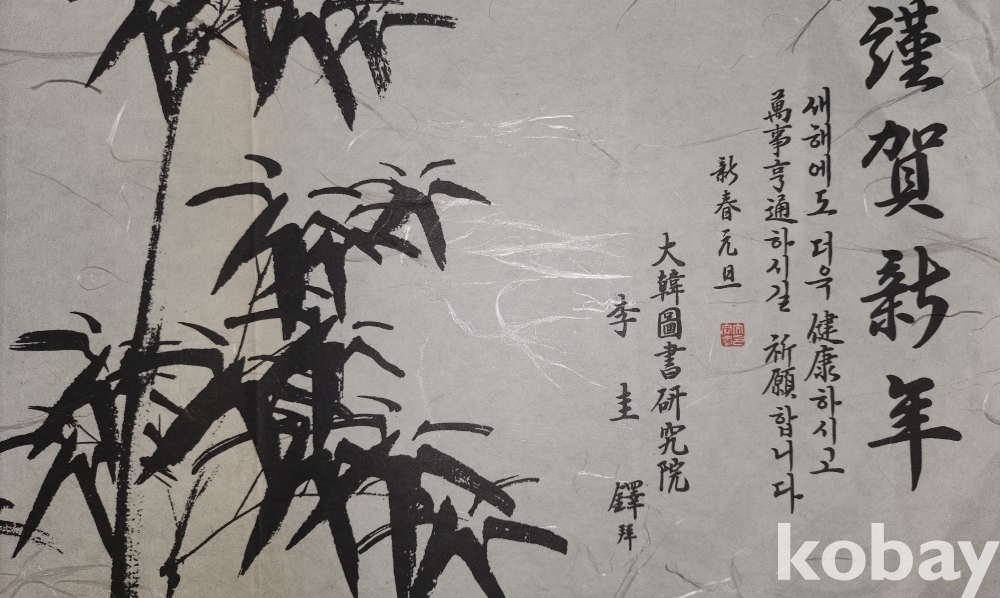 謹賀新年
새해에도 더욱 健康하시고
萬事亨通하시길 祈願합니다
新春元旦
大韓圖書研究院
李圭鐸拜
kobay